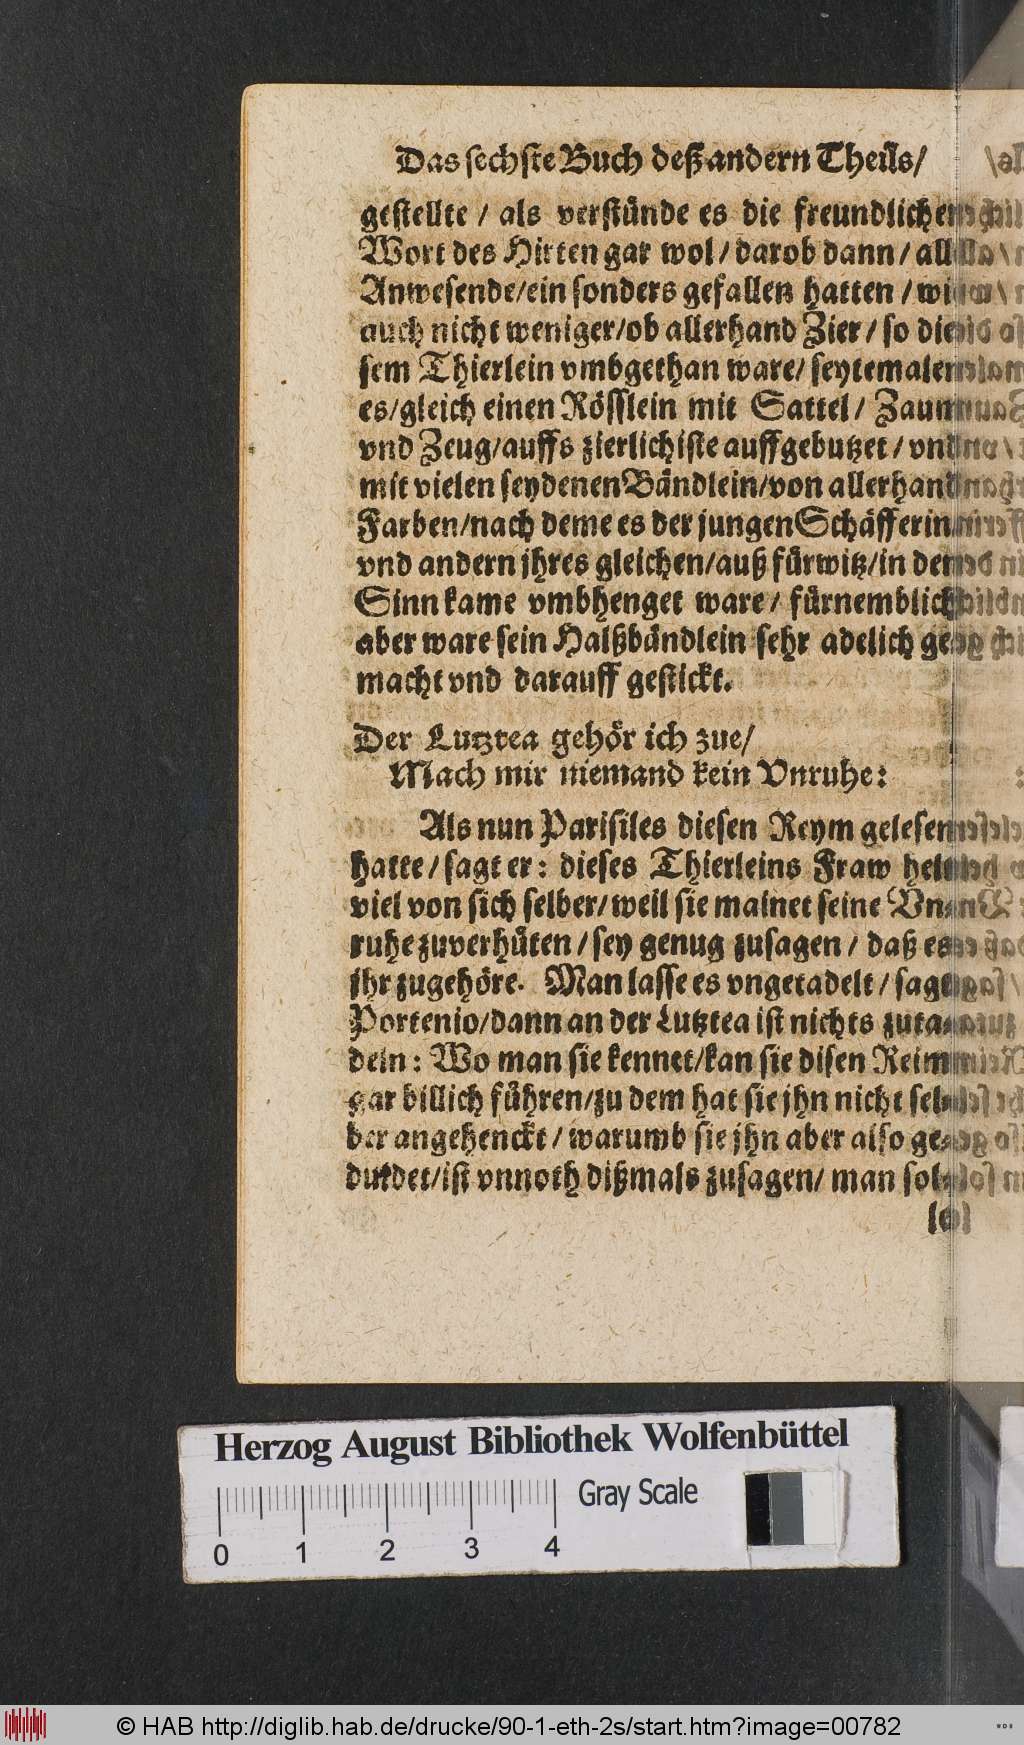 Das sechste Buch deß andern Theils/
gestellte / als verstünde es die freundlichen
Wort des Hirten gar wol / darob dann / all
Anwesende/ein sonders gefallen hatten / wie
auch nicht weniger/ob allerhand Zier / so die
sem Thierlein vmbgethan ware/ seytemalen
es/gleich einen Rösslein mit Sattel / Zaum
vnd Zeug/auffs zierlichiste auffgebutzet / vnd
mit vielen seydenen Bändlein/von allerhand
Farben/nach deme es der jungen Schäfferin
vnd andern jhres gleichen/auß fürwitz/in den
Sinn kame vmbhenget ware / fürnemblich
aber ware sein Halßbändlein sehr adelich ge
macht vnd darauff gestickt.
Der Lutztea gehör ich zue/
Mach mir niemand kein Vnruhe:
Als nun Parisiles diesen Reym gelesen
hatte / sagt er: dieses Thierleins Fraw helt
viel von sich selber/ weil sie mainet seine Vn
ruhe zuverhüten / sey genug zusagen / daß es
jhr zugehöre. Man lasse es vngetadelt / sagt
Portenio/dann an der Lutztea ist nichts zuta
deln: Wo man sie kennet/kan sie disen Reim
gar billich führen/zu dem hat sie jhn nicht sel
ber angehenckt / warumb sie jhn aber also ge
duldet/ist vnnoth dißmals zusagen/ man sol
Herzog August Bibliothek Wolfenbüttel
Gray Scale
0 1 2 3 4
© HAB http://diglib.hab.de/drucke/90-1-eth-2s/start.htm?image=00782